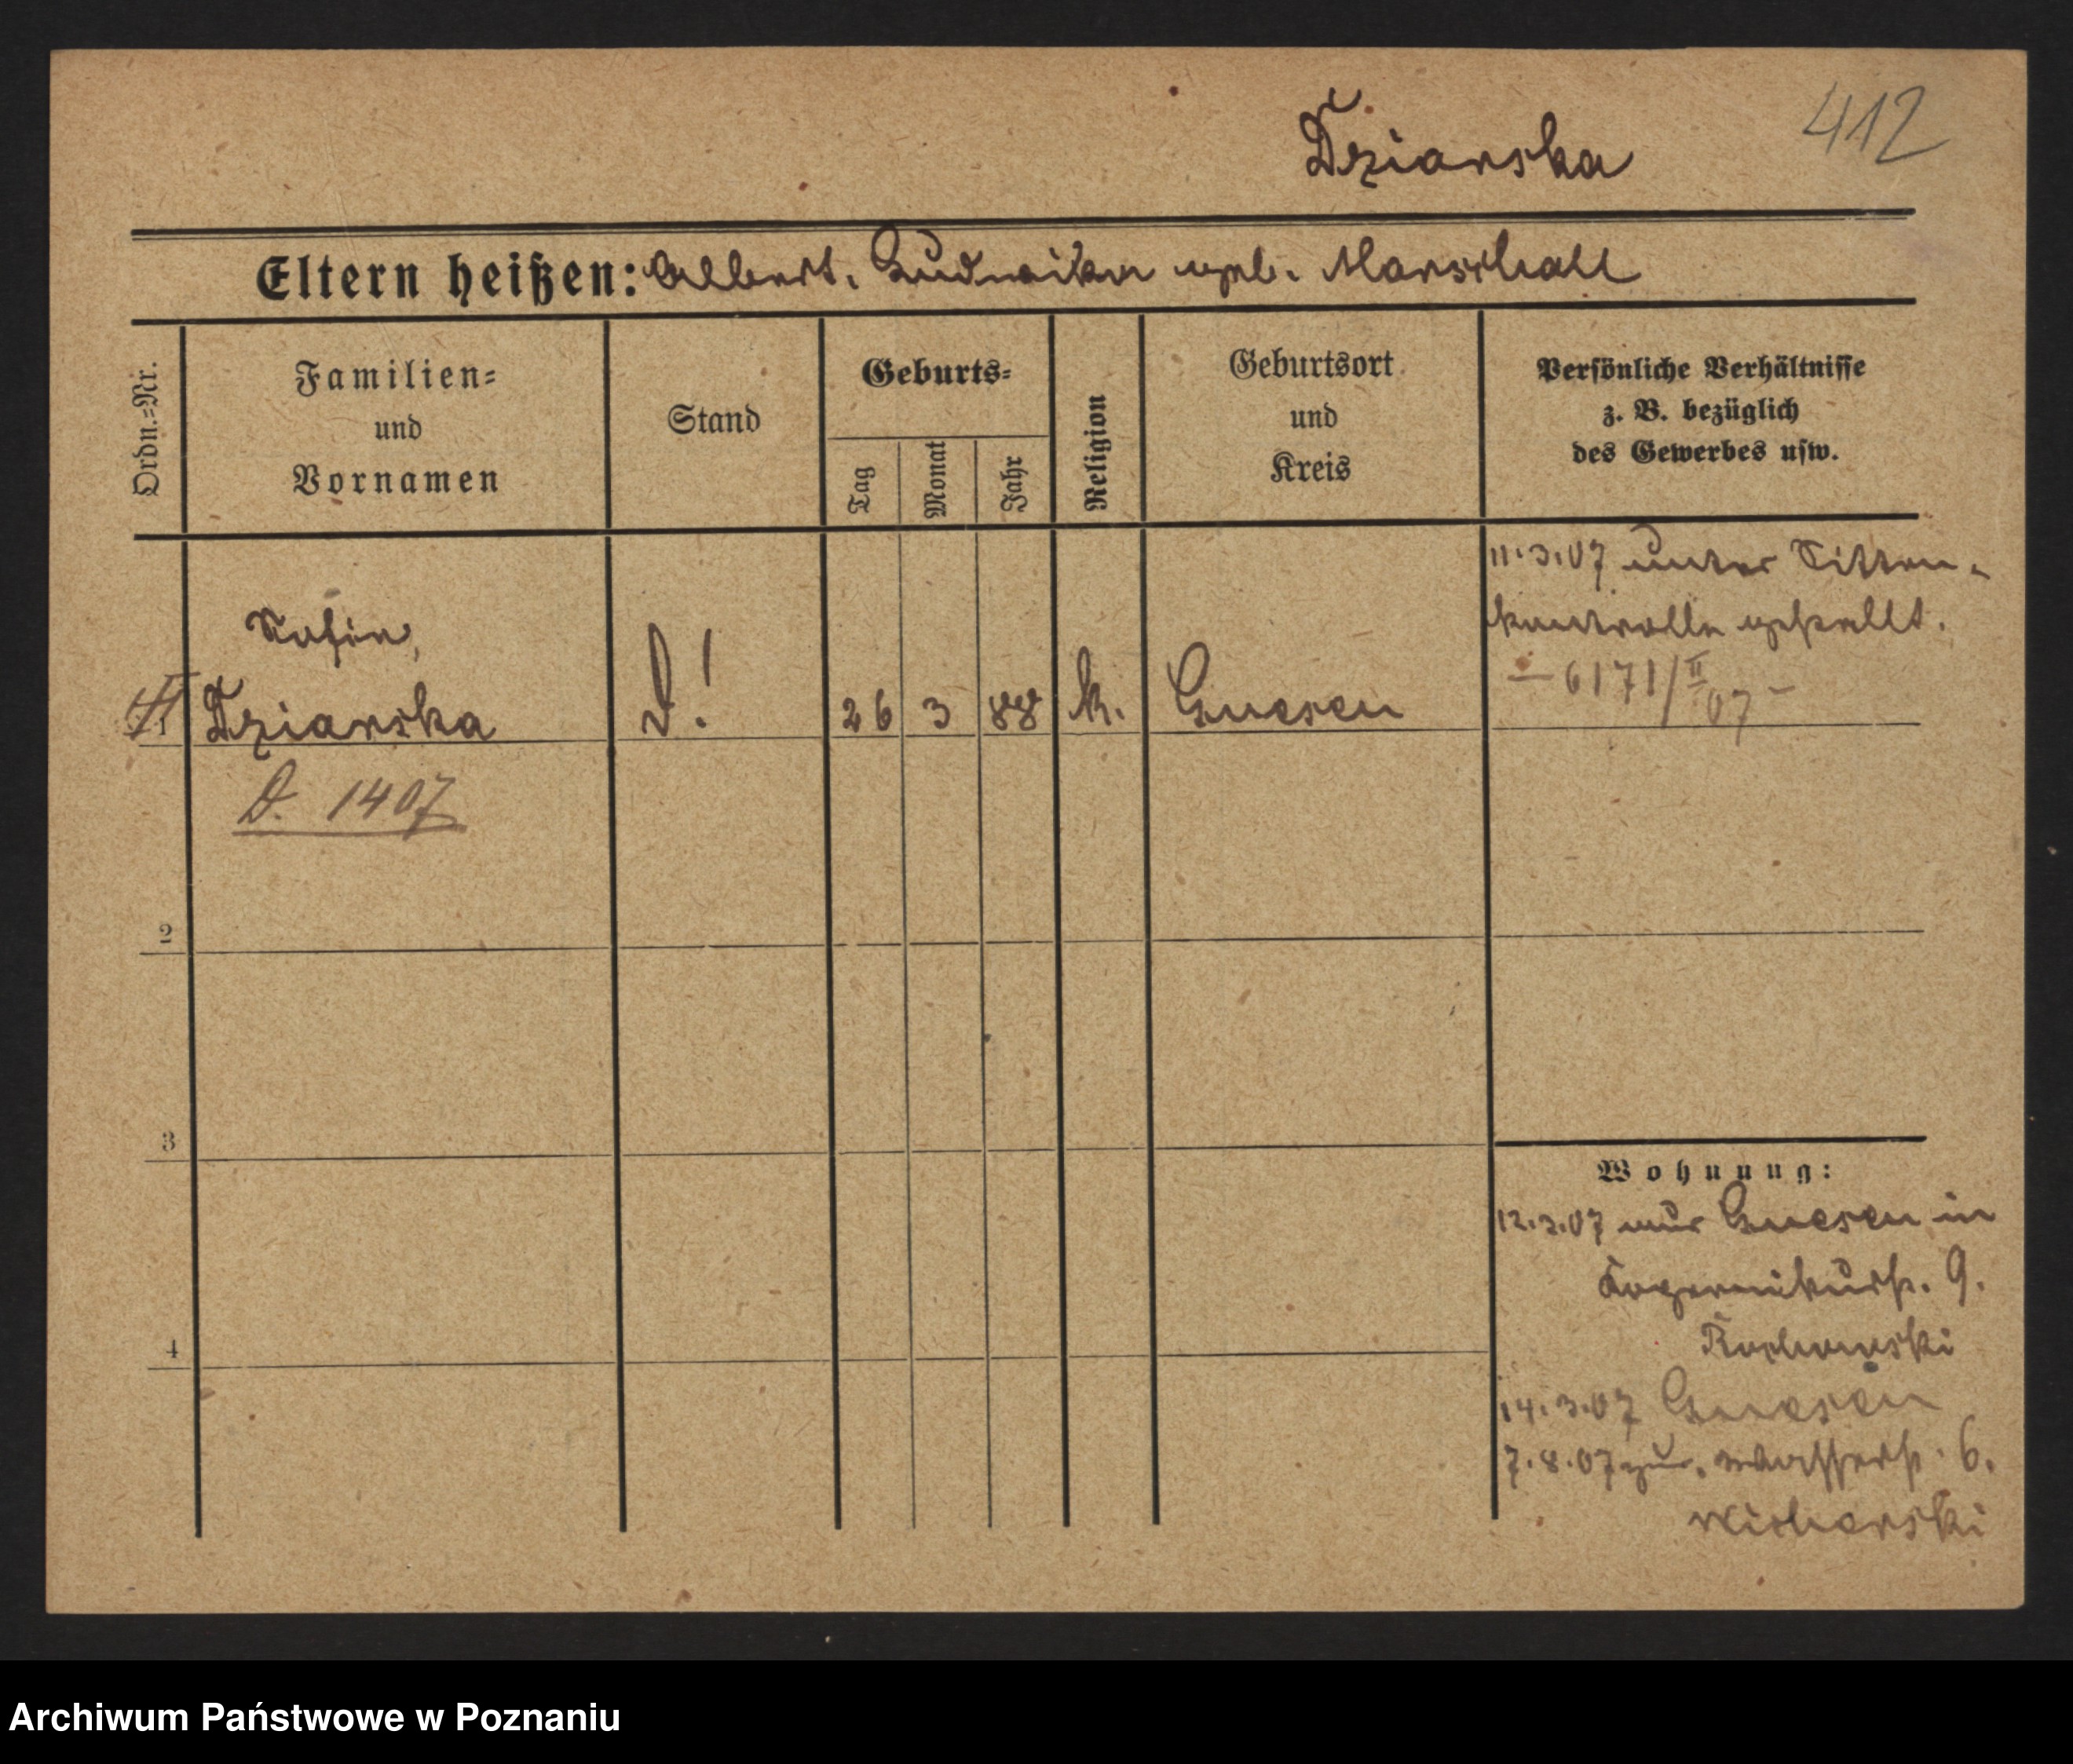 Dzianska
412
Eltern heißen: Albert, Ludwika geb. Marschall
Ordn.=Nr.
Familien=
und
Vornamen
Stand
Geburts=
Tag
Monat
Jahr
Religion
Geburtsort
und
Kreis
Persönliche Verhältnisse
z. B. bezüglich
des Gewerbes usw.
11.3.07 unter Sitten-
kontrolle gestellt.
— 6171/II 07 —
Sofie,
1 Dzianska D! 26 3 88 k. Gnesen
D. 1407
2
3
4
Wohnung:
12.3.07 aus Gnesen in
Kopernikusstr. 9.
14.3.07 Gnesen
7.8.07 zur. Wasserstr. 6.
Archiwum Państwowe w Poznaniu